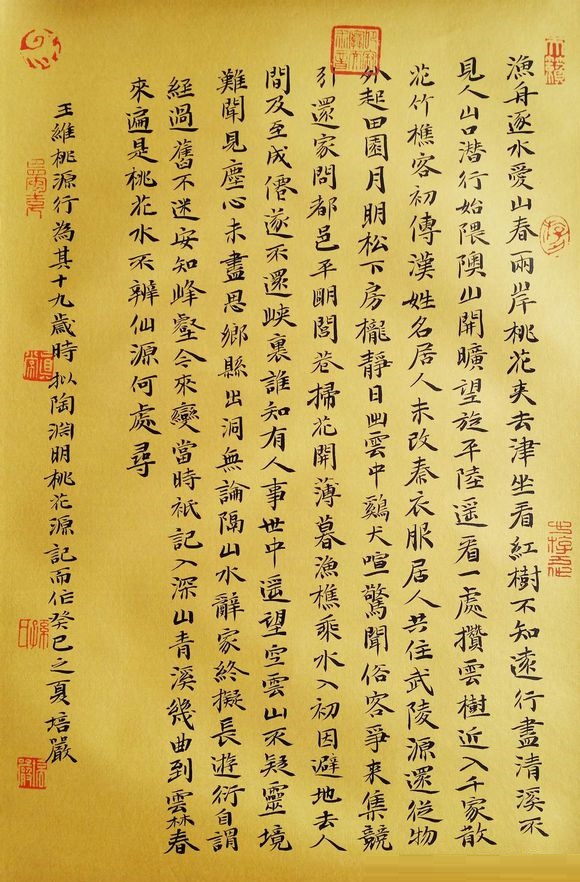 漁舟逐水愛山春兩岸桃花夾去津坐看紅樹不知遠行盡清溪不
見人山口潛行始隈隩山開曠望旋平陸遥看一處攢雲樹近入千家散
花竹樵客初傳漢姓名居人未改秦衣服居人共住武陵源還從物
外起田園月明松下房櫳靜日出雲中鷄犬喧驚聞俗客爭來集競
引還家問都邑平明閭巷掃花開薄暮漁樵乘水入初因避地去人
間及至成僊遂不還峽裏誰知有人事世中遥望空雲山不疑靈境
難聞見塵心未盡思鄉縣出洞無論隔山水辭家終擬長遊衍自謂
經過舊不迷安知峰壑今來變當時衹記入深山青溪幾曲到雲林春
來遍是桃花水不辨仙源何處尋
王維桃源行為其十九歲時拟陶淵明桃花源記而作癸巳之夏培嚴